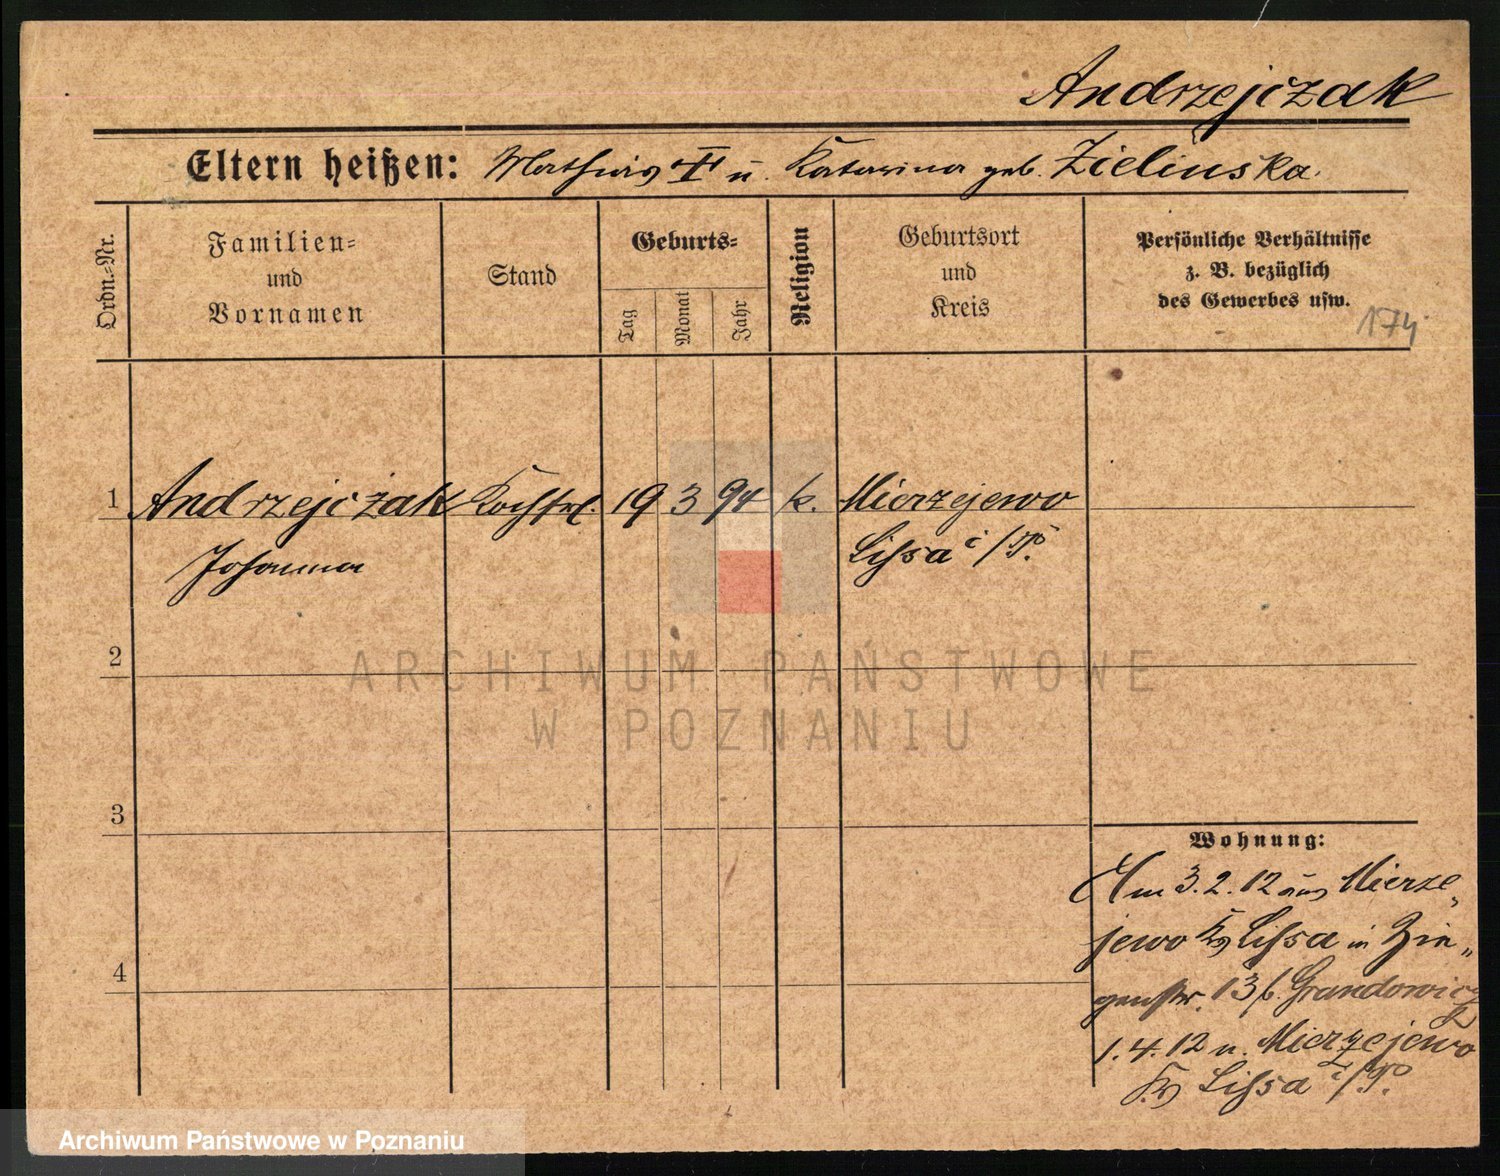 Andrzejczak
Eltern heißen: Mathias † u. Katarina geb. Zielinska.
Ordn.-Nr.
Familien-
und
Vornamen
Stand
Geburts-
Tag
Monat
Jahr
Religion
Geburtsort
und
Kreis
Persönliche Verhältnisse
z. B. bezüglich
des Gewerbes usw.
174
1 Andrzejczak Kochfrl. 19 3 94 k. Mierzejewo
Johanna Lissa i/P.
2
3
4
Wohnung:
Am 3.2.12 aus Mierze„
jewo Krs Lissa in Zie„
genstr. 13 b. Grandowicz
1.4.12 n. Mierzejewo
Krs Lissa i/P.
ARCHIWUM PAŃSTWOWE
W POZNANIU
Archiwum Państwowe w Poznaniu